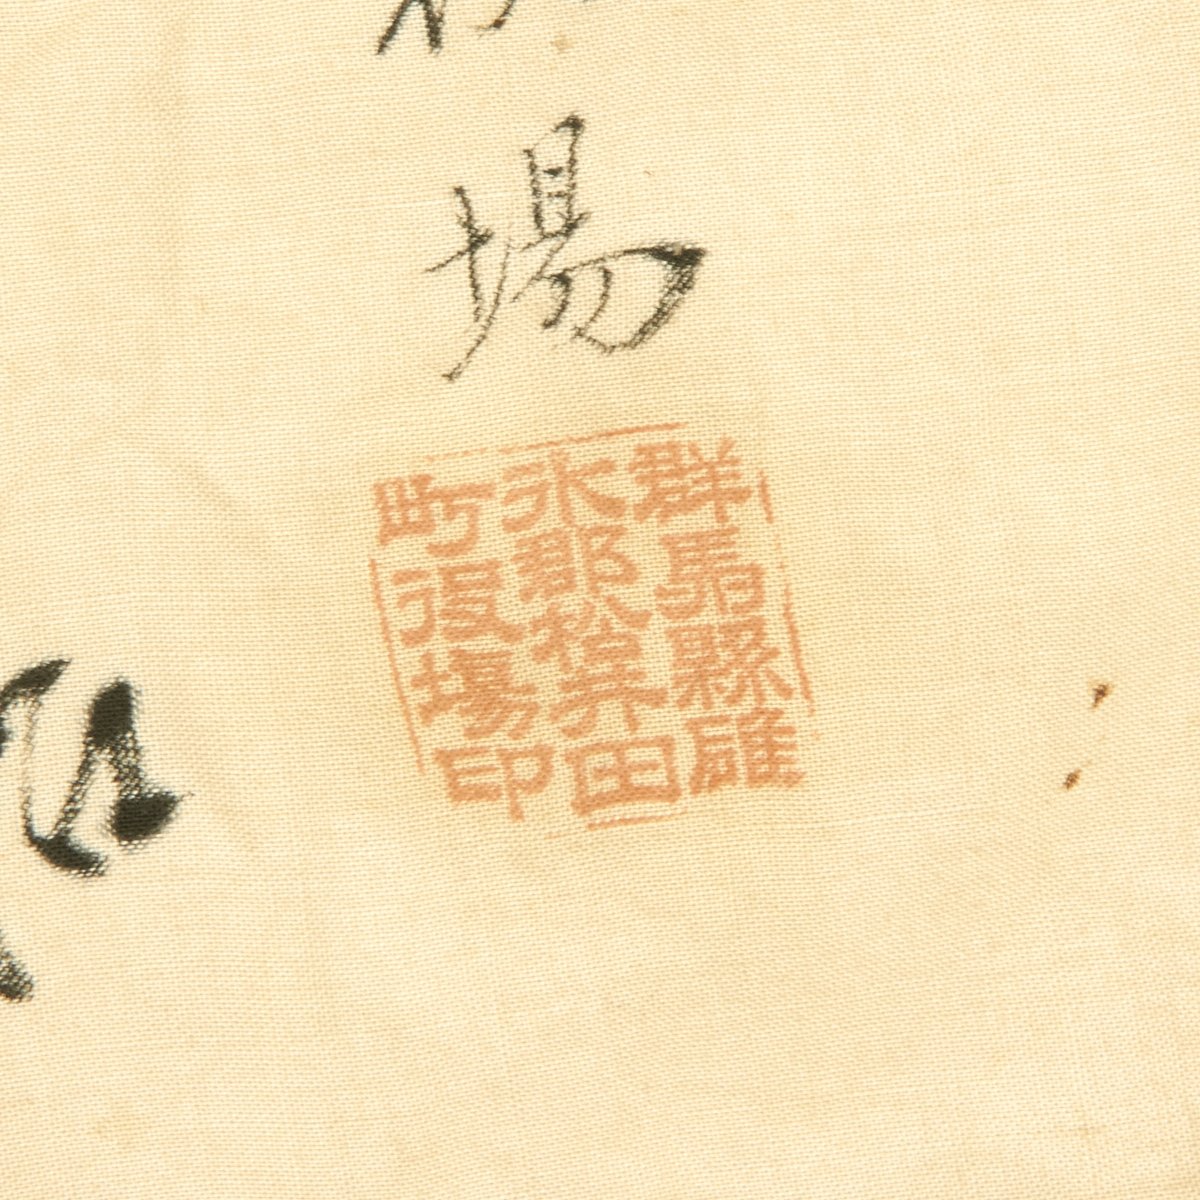 場
群馬縣碓
氷郡松井田
町役場印